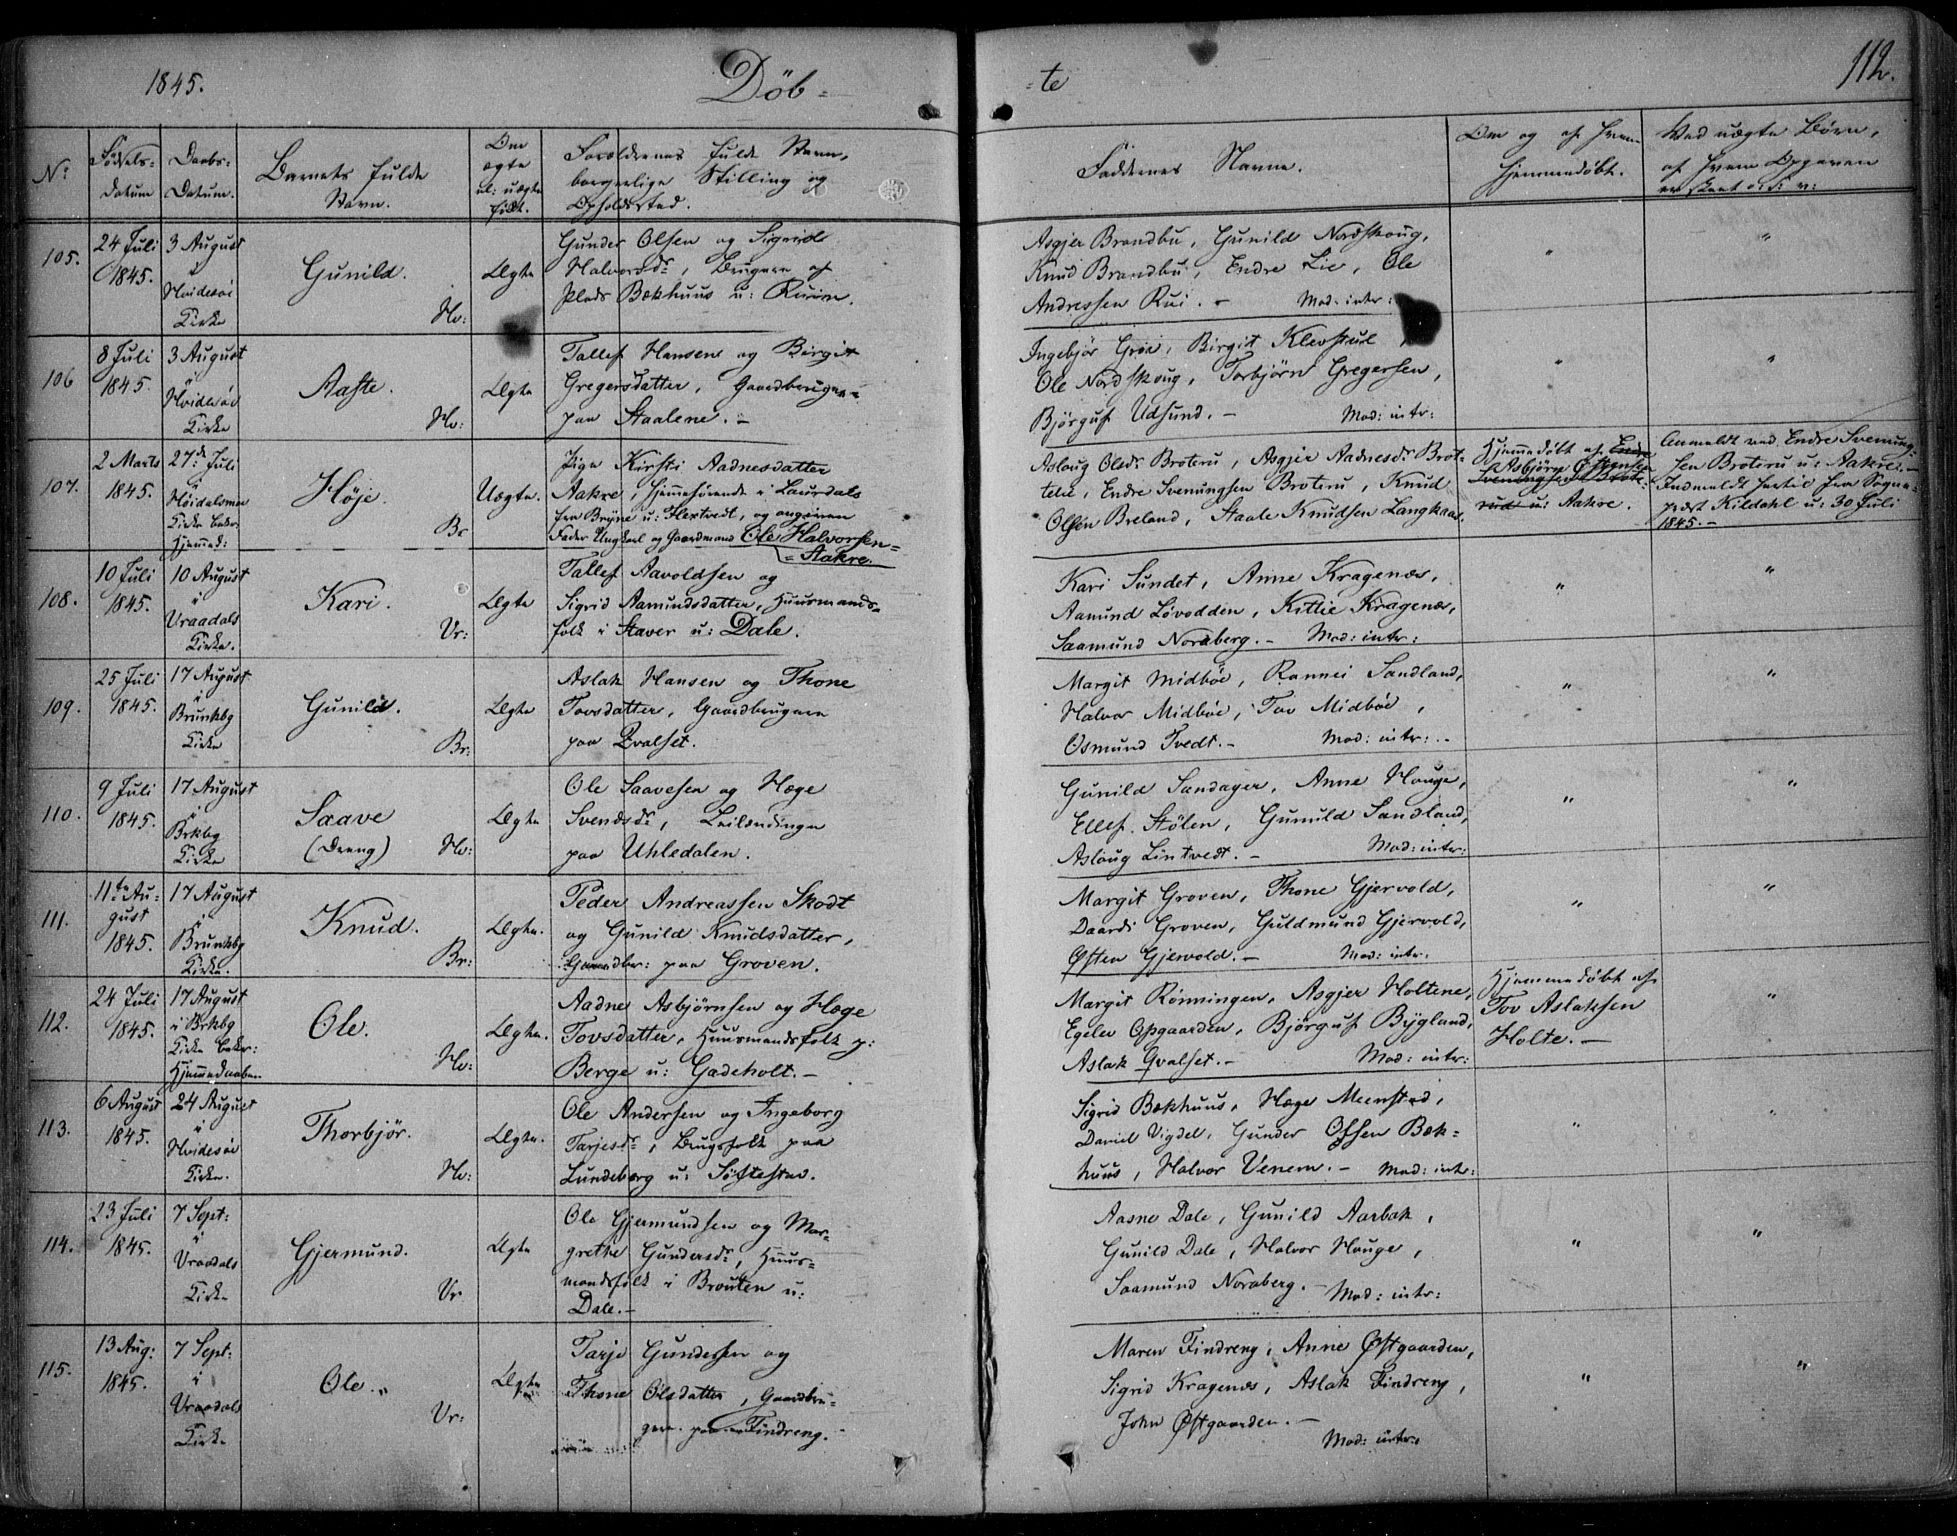 1845.
Döb-
-te
112.
No
Fødsels-
datum
Daabs-
Datum.
Barnets fulde
Navn.
Om
ægte
el: uægte
født.
Forældrenes fulde Navn,
borgerlige Stilling og
Opholdssted.
Faddernes Navne.
Om og af hvem
hjemmedøbt.
Ved uægte Børn,
af hvem Opgaven
er skeet o: s: v:
105.
24 Juli
1845.
3 August
i
Hvidesøe
Kirke
Gunild.
Hv:
Ægte
Gunder Olsen og Sigrid
Halvorsdr, Brugere af
Plads Bækhuus u: Ruim.
Asgjer Brandbu, Gunild Nordskoug,
Knud Brandbu, Endre Lie, Ole
Andressen Rui. - Mod: intr:
"
"
106
8 Juli
1845.
3 August
i
Hvidesøe
Kirke
Aaste.
Hv:
Ægte
Tallef Hansen og Birgit
Gregersdatter, Gaardbruger-
paa Staalene. -
Ingebjør Groe, Birgit Klevstul,
Ole Nordskoug, Torbjørn Gregersen,
Bjørguf Udsund. - Mod: intr:
"
"
107.
2 Marts
1845.
27de Juli
i
Kirke bekr:
Hjemmed:
Høje.
Br
Uægte.
Pige Kirsti Aadnesdatter
Aakre, hjemmehørende i Laurdals
fra Brÿne u: Flextvedt, og angiven
Fader Ungkarl og Gaardmand Ole Halvorsen-
-Aakre.
Aaslaug Olsdr Broteru, Asgjer Aadnesdr Brot-
telie, Endre Svenungsen Broteru, Knud
Olsen Breland, Staale Knudsen Langkaas.
Hjemmedøbt af Endre
Asbjørn Østensen
Svenungsen Brote-
rud u: Aakre.
Anmeldt ved Endre Svenung-
sen Broteru u: Aakre. -
Indmeldt hertil fra Sogne-
prest Kildahl u: 30 Juli
1845. -
108.
10 Juli
1845.
10 August
i
Vraadals
Kirke.
Kari.
Vr:
Ægte
Tallef Aavoldsen og
Sigrid Aamundsdatter, Huusmands-
folk i Staver u: Dale.
Kari Sundet, Anne Kragenæs,
Aamund Løvodden, Kittie Kragenæs,
Saamund Noraberg. - Mod: intr:
"
"
109.
25 Juli
1845.
17 August
i
Brunkbg
Kirke
Gunild.
Br:
Ægte
Aslak Hansen og Thone
Tovsdatter, Gaardbrugere
paa Qvalset.
Margit Midbøe, Rannei Sandland,
Halvor Midbøe, Tov Midbøe,
Osmund Tvedt. - Mod: intr: -
"
"
110.
9 Juli
1845.
17 August
i
Brkbg
Kirke
Saave
(Dreng)
Hv:
Ægte
Ole Saavesen og Hæge
Svendsdr, Leilændinge
paa Uhledalen.
Gunild Sandager, Anne Houge,
Ellef Stølen, Gunuld Sandland,
Aslaug Lintvedt. - Mod: intr:
"
"
111.
11te Au-
gust
1845.
17 August
i
Brunkbg
Kirke.
Knud.
Br:
Ægte.
Peder Andreassen Skodt
og Gunild Knudsdatter,
Gaardbr: paa Groven.
Margit Groven, Thone Gjervold,
Daardi Groven, Guldmund Gjervold,
Østen Gjervold. - Mod: intr.
"
"
112.
24 Juli
1845.
17 August
i Brkbg
Kirke bekr:
Hjemmedaaben
Ole.
Hv:
Ægte.
Aadne Asbjørnsen og Hæge
Tovsdatter, Huusmandsfolk p:
Berge u: Gadeholt. -
Margit Rönningen, Asgjer Holtene,
Egeleu Opgaarden, Bjørguf Bÿgland,
Aslak Qvalset. - Mod: intr:
Hjemmedøbt af
Tov Aslaksen
Holte. -
"
113.
6 August
1845.
24 August
i
Hvidesøe
Kirke.
Thorbjør.
Hv:
Ægte.
Ole Andersen og Ingeborg
Tarjesdr, Brugsfolk paa
Lundeborg u: Söftestad.
Sigrid Bækhuus, Hæge Meenstad,
Daniel Vigdel, Gunder Olsen Bæk-
huus, Halvor Venem. - Mod: intr:
"
"
114.
23 Juli
1845.
7 Sept:
i
Vraadals
Kirke
Gjermund.
Vr
Ægte
Ole Gjermundsen og Mar-
grethe Gundersdr, Huus-
mandsfolk i Brouten u:
Dale. -
Aasne Dale, Gunild Aarbak,
Gunild Dale, Halvor Houge,
Saamund Noraberg. - Mod: intr:
"
"
115.
13 Aug:
1845.
7 Sept:
i
Vraadals
Kirke
Ole.
Vr:
Ægte
Tarje Gundersen og
Thone Olsdatter, Gaardbru-
gere paa Findreng.
Maren Findreng, Anne Østgaarden,
Sigrid Kragenæs, Aslak Findreng,
John Østgaarden. -
Mod: intr:
"
"